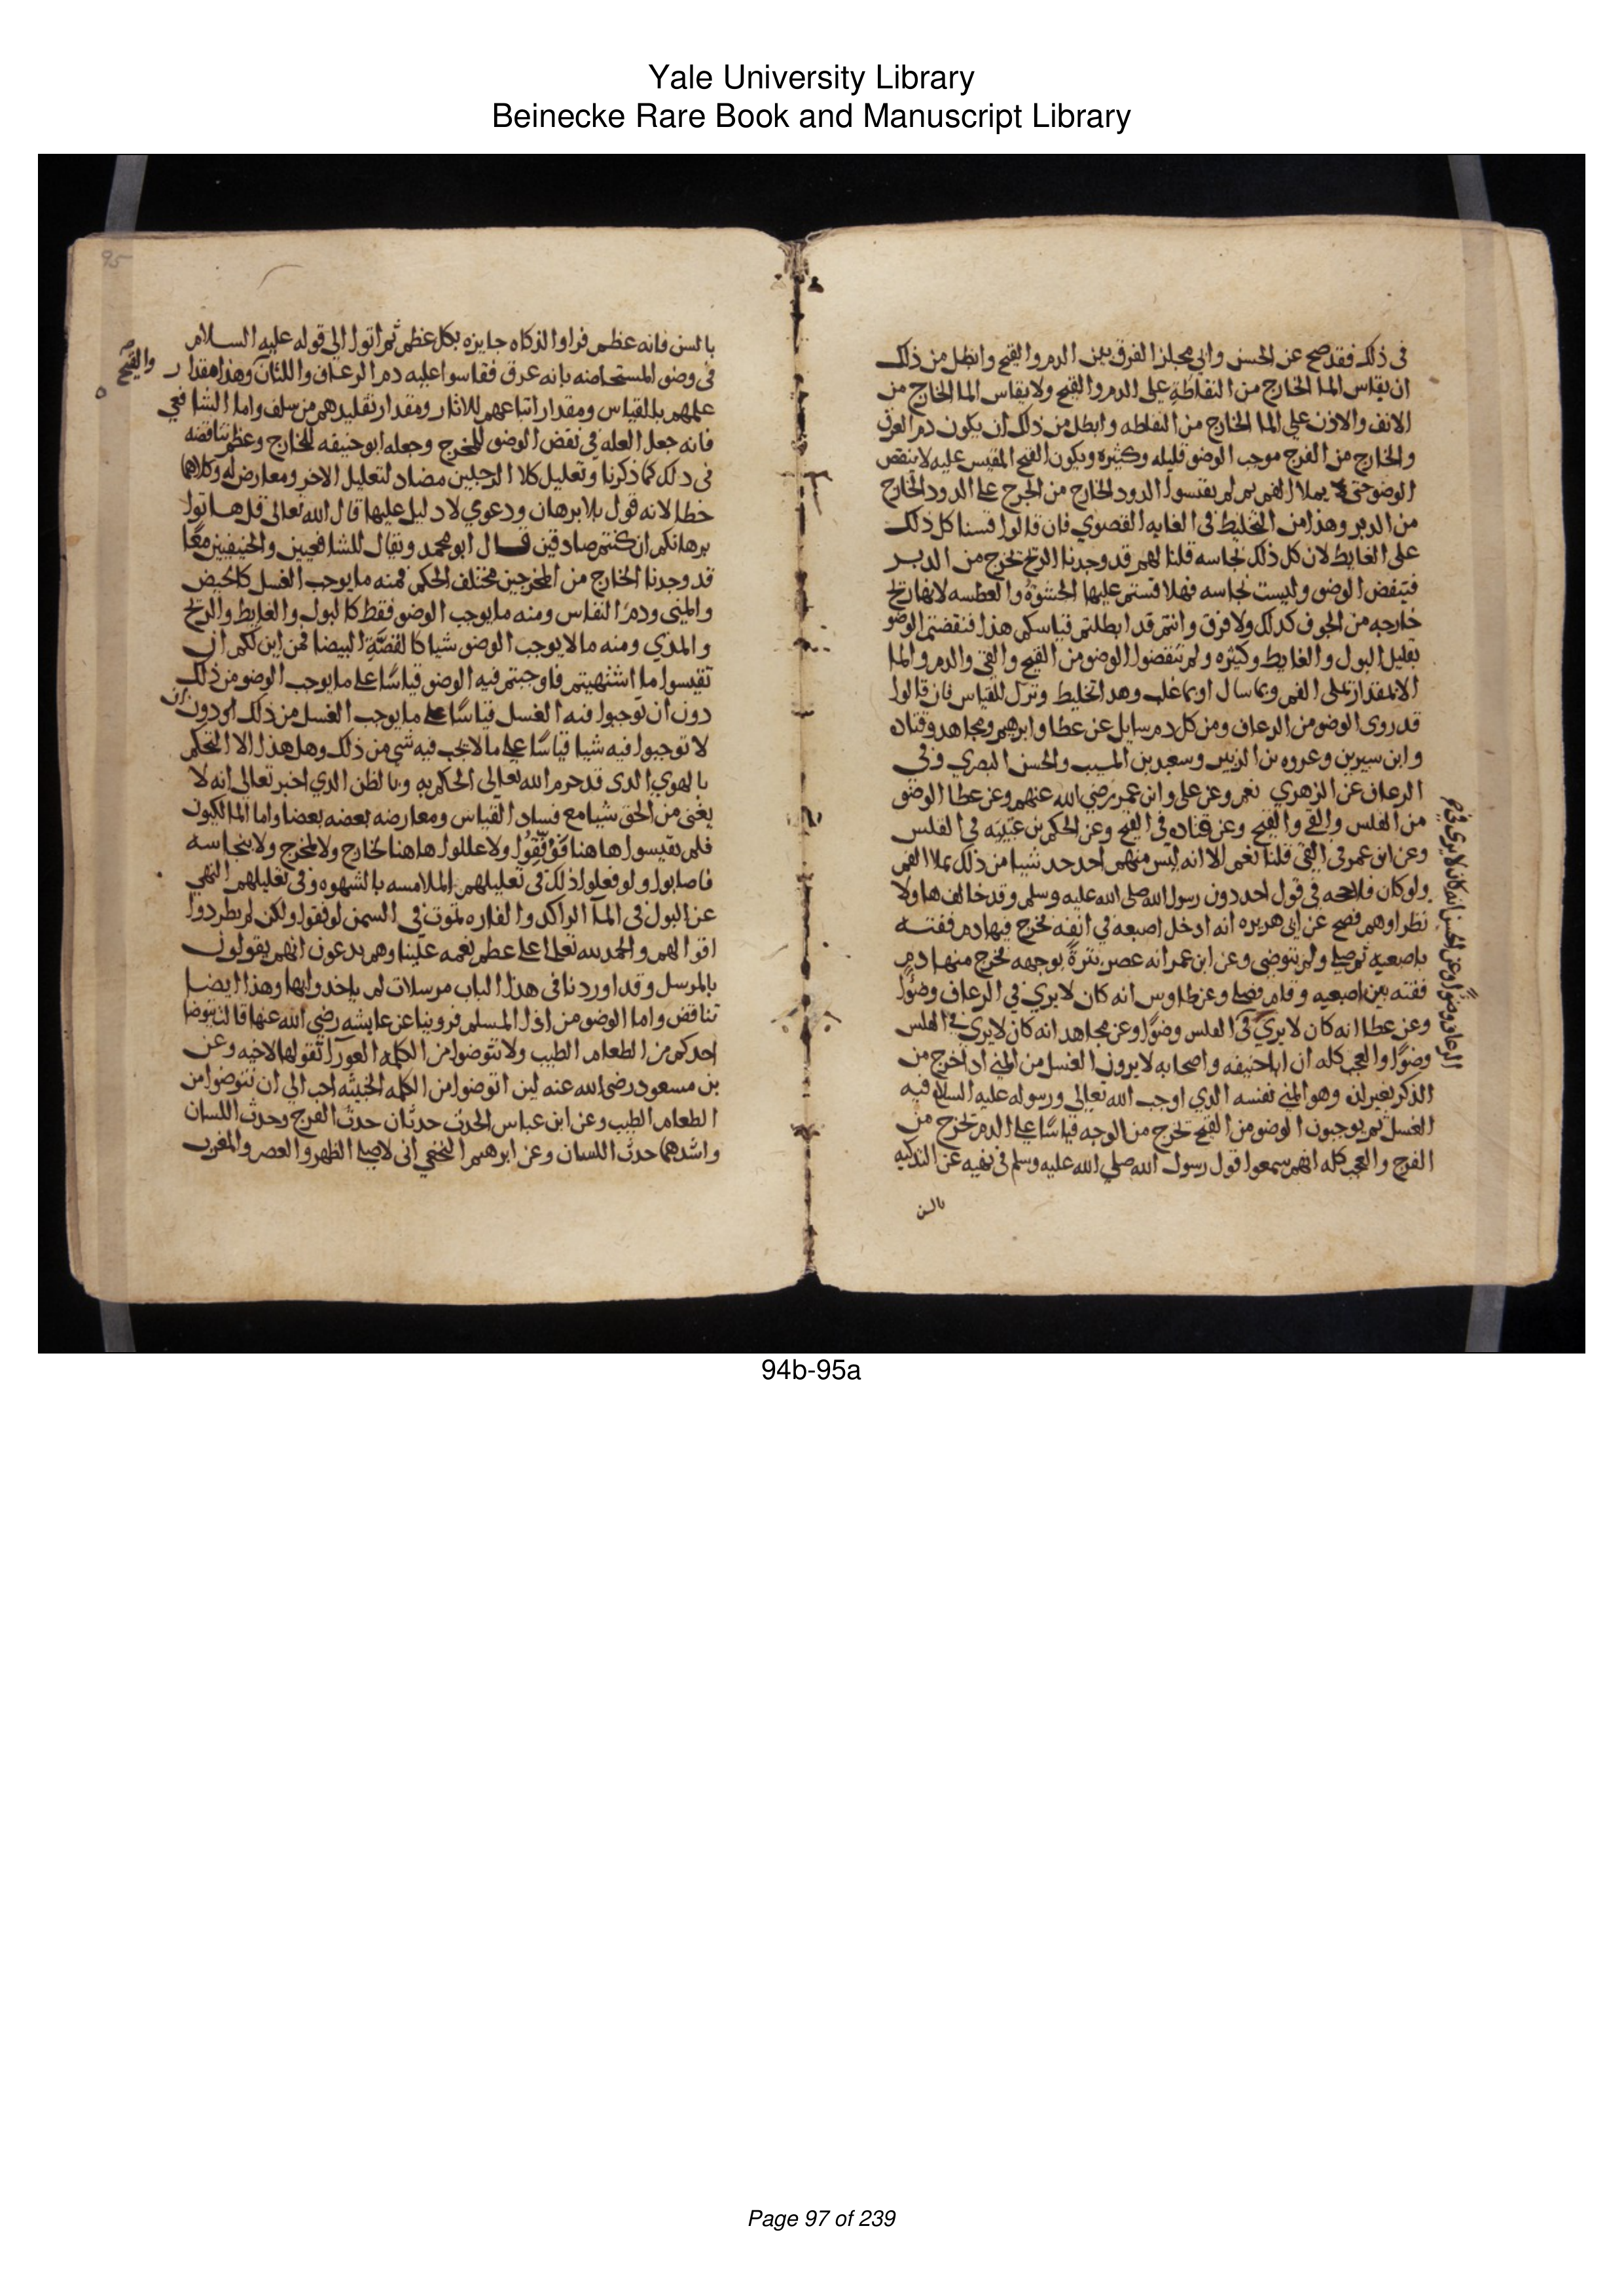 Yale University Library
Beinecke Rare Book and Manuscript Library
في ذلك فقد صح عن الحسن وابي مجلز الفرق بين الدم والقيح وابطل من ذلك
ان يقاس الما الخارج من النفاطة على الدم والقيح ولا يقاس الما الخارج من
الانف والاذن على الما الخارج من النفاطه وابطل من ذلك ان يكون دم العرق
والخارج من الفرج موجب الوضو قليله وكثيره ويكون القيح المقيس عليه لا ينقض
الوضو حتى يملا الفم ثم لم يقيسوا الدود الخارج من الجرح على الدود الخارج
من الدبر وهذا من التخليط في الغايه القصوي فان قالوا قسنا كل ذلك
على الغايط لان كل ذلك نجاسه قلنا لهم قد وجدنا الريح تخرج من الدبر
فتنقض الوضو وليست نجاسه فهلا قستم عليها الجشوة والعطسه لانها ريح
خارجه من الجوف كذلك ولا فرق وانتم قد ابطلتم قياسكم هذا فنقضتم الوضو
بقليل البول والغايط وكثيره ولم تنقضوا الوضو من القيح والقي والدم والما
الا بمقدار يملى الفم وبما سال او بما غلب وهذا تخليط وترك للقياس فان قالوا
قد روى الوضو من الرعاف ومن كل دم سايل عن عطا وابرهيم ومجاهد وقتاده
وابن سيرين وعروه بن الزبير وسعيد بن المسيب والحسن البصري وفي
الرعاف عن الزهري نعم وعن علي وابن عمر رضي الله عنهم وعن عطا الوضو
من القلس والقي والقيح وعن قتاده في القيح وعن الحكم بن عتيبه في القلس
وعن ابن عمر في القي قلنا نعم الا انه ليس منهم احد حد شيا من ذلك بملا الفم
ولو كان فلا حجه في قول احد دون رسول الله صلى الله عليه وسلم وقد خالف هاولا
نظراوهم فصح عن ابي هريره انه ادخل اصبعه في انفه فخرج فيها دم ففته
باصبعيه ثم صلى ولم يتوضى وعن ابن عمر انه عصر بثرةً بوجهه فخرج منها دم
ففته بين اصبعيه وقام فصلى وعن طاوس انه كان لا يري في الرعاف وضوًا
وعن عطا انه كان لا يري في القلس وضوًا وعن مجاهد انه كان لا يري في القلس
وضوًا والعجب كله ان ابا حنيفه واصحابه لا يرون الغسل من المني اذا خرج من
الذكر لغير لذه وهو المني نفسه الذي اوجب الله تعالى ورسوله عليه السلام فيه
الغسل ثم يوجبون الوضو من القيح تخرج من الوجه قياسًا على الدم تخرج من
الفرج والعجب كله انهم سمعوا قول رسول الله صلى الله عليه وسلم في نهيه عن التذكيه
بالسن
95
بالسن فانه عظم فراوا الذكاه جايزه بكل عظم ثم اتوا الى قوله عليه السلام
في وضو المستحاضه بانه عرق فقاسوا عليه دم الرعاف واللثات وهذا مقدار
والقيح
علمهم بالقياس ومقدار اتباعهم للاثار ومقدار تقليدهم من سلف واما الشافعي
فانه جعل العله في نقض الوضو للمخرج وجعله ابو حنيفه للخارج وعظم تناقضه
في ذلك كما ذكرنا وتعليل كلا الرجلين مضاد لتعليل الاخر ومعارض له وكلاهما
خطا لانه قول بلا برهان ودعوي لا دليل عليها قال الله تعالى قل هاتوا
برهانكم ان كنتم صادقين قال ابو محمد ويقال للشافعيين والحنيفيين معًا
قد وجدنا الخارج من المخرجين مختلف الحكم فمنه ما يوجب الغسل كالحيض
والمني ودم النفاس ومنه ما يوجب الوضو فقط كالبول والغايط والريح
والمذي ومنه ما لا يوجب الوضو شيا كالقصَّةِ البيضا فمن اين لكم ان
تقيسوا ما اشتهيتم فاوجبتم فيه الوضو قياسًا على ما يوجب الوضو من ذلك
دون ان توجبوا فيه الغسل قياسًا على ما يوجب الغسل من ذلك او دون ان
لا توجبوا فيه شيا قياسًا على ما لا يجب فيه شي من ذلك وهل هذا الا التحكم
بالهوي الذي قد حرم الله تعالى الحكم به وبالظن الذي اخبر تعالى انه لا
يغني من الحق شيا مع فساد القياس ومعارضه بعضه بعضا واما المالكيون
فلم يقيسوا هاهنا فَوُفِّقُوا ولا عللوا هاهنا لخارج ولا لمخرج ولا بنجاسه
فاصابوا ولو فعلوا ذلك في تعليلهم الملامسه بالشهوه وفي تعليلهم النهي
عن البول في المآ الراكد والفاره تموت في السمن لوفقوا ولكن لم يطردوا
اقوالهم والحمد لله تعالى على عظم نعمه علينا وهم يدعون انهم يقولون
بالمرسل وقد اوردنا في هذا الباب مرسلات لم ياخذوا بها وهذا ايضا
تناقض واما الوضو من اذل المسلم فروينا عن عايشه رضي الله عنها قالت يتوضا
احدكم من الطعام الطيب ولا يتوضوا من الكلمه العورآ تقولها لاخيه وعن
بن مسعود رضي الله عنه لين اتوضوا من الكلمه الخبيثه احب الي ان نتوضوا من
الطعام الطيب وعن ابن عباس الحدث حدثان حدث الفرج وحدث اللسان
واشدهما حدث اللسان وعن ابرهيم النخعي اني لاصلي الظهر والعصر والمغرب
94b-95a
Page 97 of 239